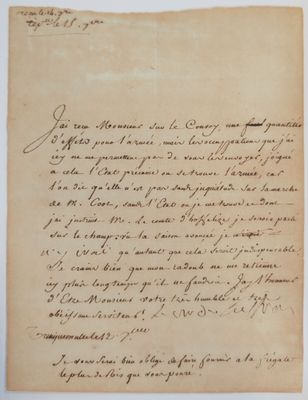 J'ai recu Monsieur sur le Convoy, une quantités
d'effets pour l'armée, mais les occupations que j'ai
icy ne me permettent pas de vous les envoyer, joigné
a cela l'Etat présume ou se trouve l'armée, car
l'on dit qu'elle n'est pas sans inquiétude sur la marche
de M. Coot, dans l'Etat ou je me trouve dont
j'ai instruit M. le comte d'hoffelize je serois parti
sur le champ, vu la saison avancé
n'y qu'autant que cela seroit indispensable
Je crains bien que mon radoub ne me retienne
icy plus longtems qu'il ne faudroit. Jay l'honneur
d'Etre Monsieur votre très humble et très
obeissant Serviteur
Trinquemalé le 12
Je vous serai bien obligé de faire fournir a la frégate
le plus de Ris que vous pourré.